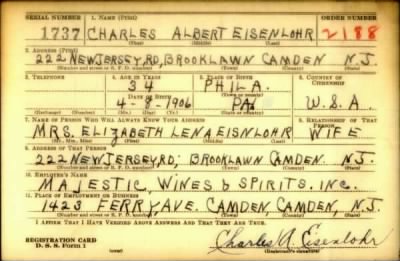 SERIAL NUMBER 1. NAME (Print) ORDER NUMBER
1737 CHARLES ALBERT EISENLOHR 2188
(First) (Middle) (Last)
2. ADDRESS (Print)
222 NEW JERSEY, RD, BROOKLAWN CAMDEN N.J.
(Number and street or R. F. D. number) (Town) (County) (State)
3. TELEPHONE 4. AGE IN YEARS 5. PLACE OF BIRTH 6. COUNTRY OF CITIZENSHIP
34 PHILA.
DATE OF BIRTH (Town or county)
4-9-1906 PA U.S.A.
(Exchange) (Number) (Mo.) (Day) (Yr.) (State or country)
7. NAME OF PERSON WHO WILL ALWAYS KNOW YOUR ADDRESS 8. RELATIONSHIP OF THAT PERSON
MRS. ELIZABETH LENA EISNLOHR WIFE
(Mr., Mrs., Miss) (First) (Middle) (Last)
9. ADDRESS OF THAT PERSON
222 NEW JERSEY, RD; BROOKLAWN CAMDEN. N.J.
(Number and street or R. F. D. number) (Town) (County) (State)
10. EMPLOYER'S NAME
MAJESTIC, WINES & SPIRITS. INC.
11. PLACE OF EMPLOYMENT OR BUSINESS
1423 FERRY, AVE. CAMDEN, CAMDEN, N.J.
(Number and street or R. F. D. number) (Town) (County) (State)
I AFFIRM THAT I HAVE VERIFIED ABOVE ANSWERS AND THAT THEY ARE TRUE.
REGISTRATION CARD
D. S. S. Form 1 Charles A. Eisenlohr